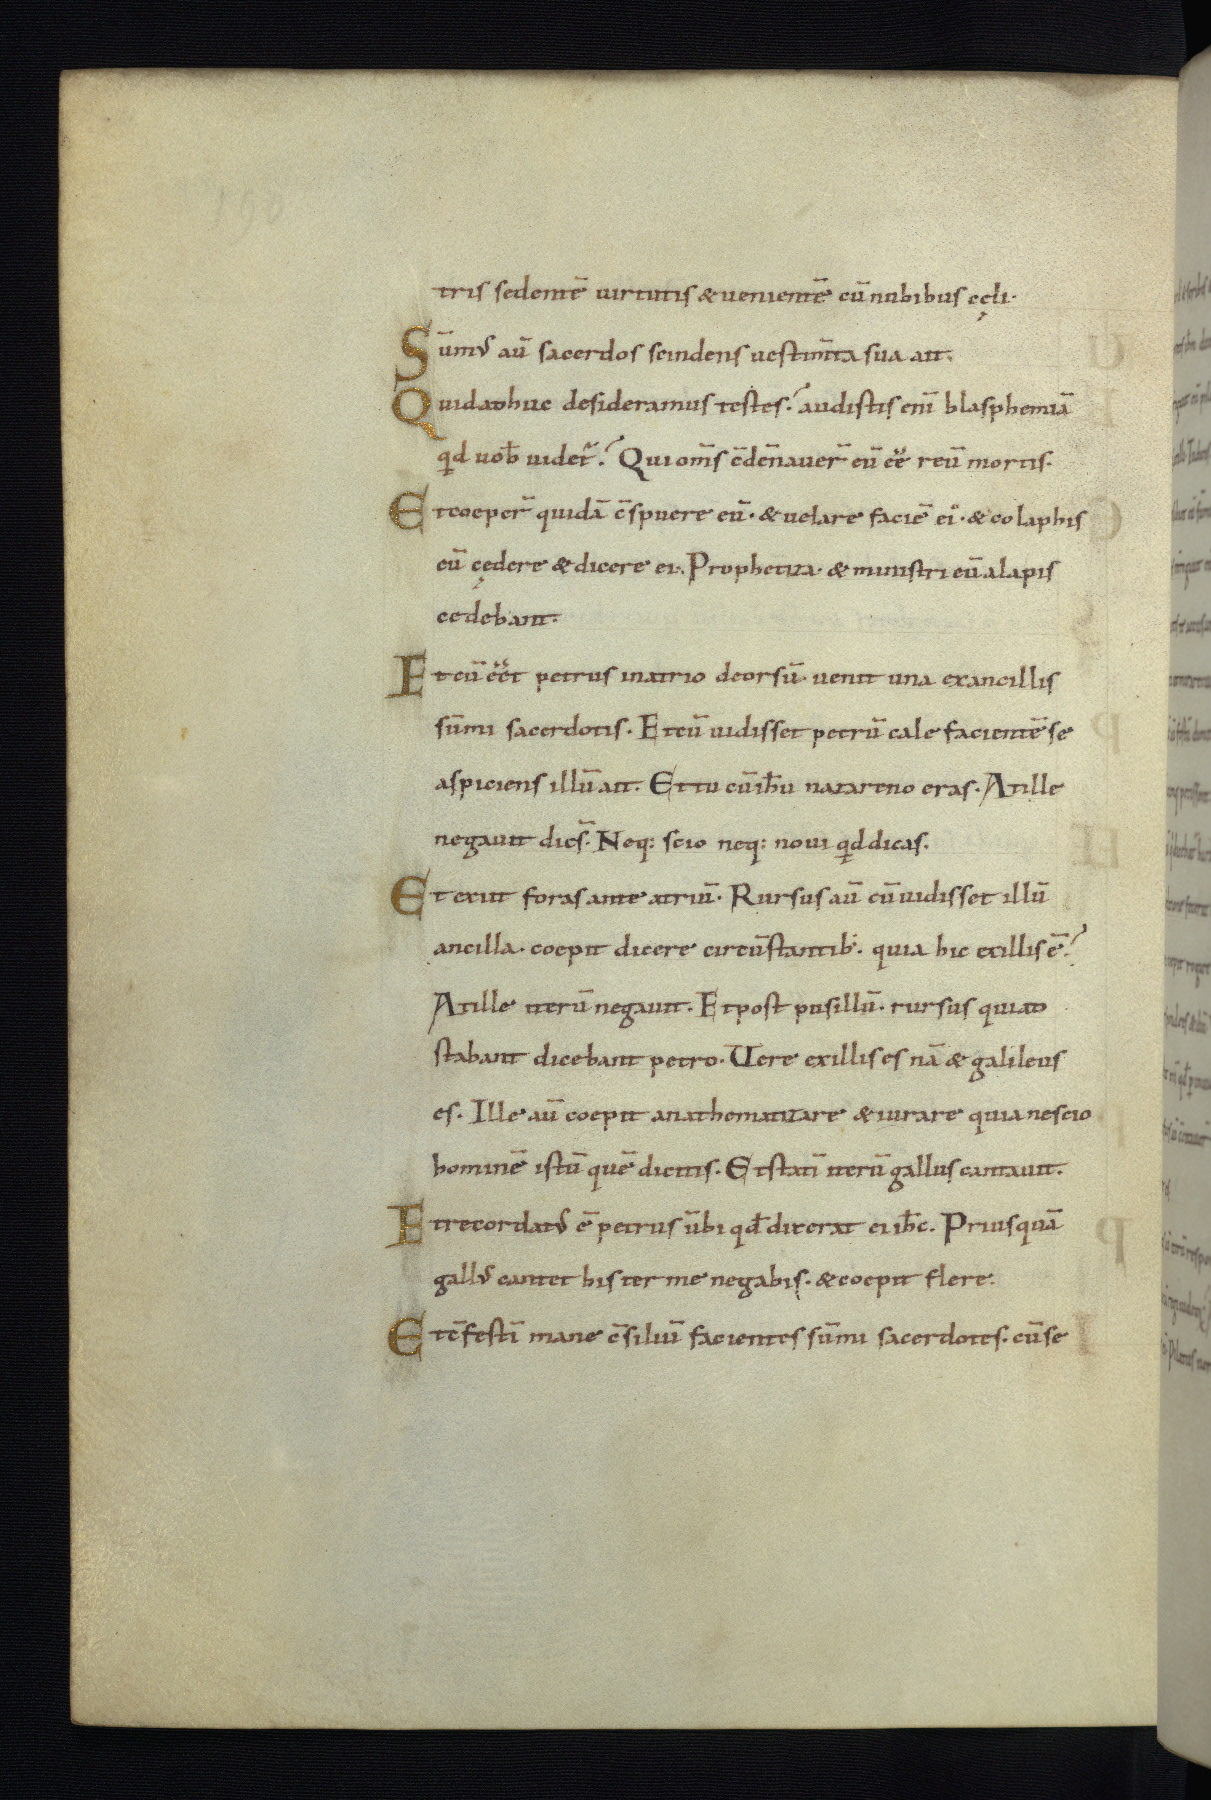 tris sedentē uirtutis & uenientē cū nubibus cęli·
Sūmꝰ aū sacerdos scindens uestim̄ta sua ait.
Quid adhuc desideramus testes? audistis eni̅ blasphemiā
qd uob̅ uidet̅? Qui om̅s c̅de̅nauer̅ eū ee̅ reū mortis.
Et coeper̅ quidā c̅spuere eū· & uelare faciē ei'· & colaphis
eū cędere & dicere ei· Prophetiza· & ministri eū alapis
cedebant·
Et cū ee̅t petrus in atrio deorsū· uenit una ex ancillis
sūmi sacerdotis· Et cū uidisset petrū calefacientē se
aspiciens illū ait· Et tu cū ih̅u nazareno eras· At ille
negauit dic̅s· Neq; scio neq; noui qd dicas·
Et exiit foras ante atriū· Rursus aū cū uidisset illū
ancilla· coepit dicere circūstantib;· quia hic ex illis ē?
At ille iterū negauit· Et post pusillū· rursus qui ad
stabant dicebant petro· Uere ex illis es nā & galileus
es· Ille aū coepit anathematizare & iurare quia nescio
hominē istū quē dicitis· Et stati̅ iterū gallus cantauit·
Et recordatꝰ ē petrus ūbi qd̅ dixerat ei ih̅c· Priusquā
gallꝰ cantet bis ter me negabis· & coepit flere·
Et c̅festi̅ mane c̅siliū facientes sūmi sacerdotes· cū se